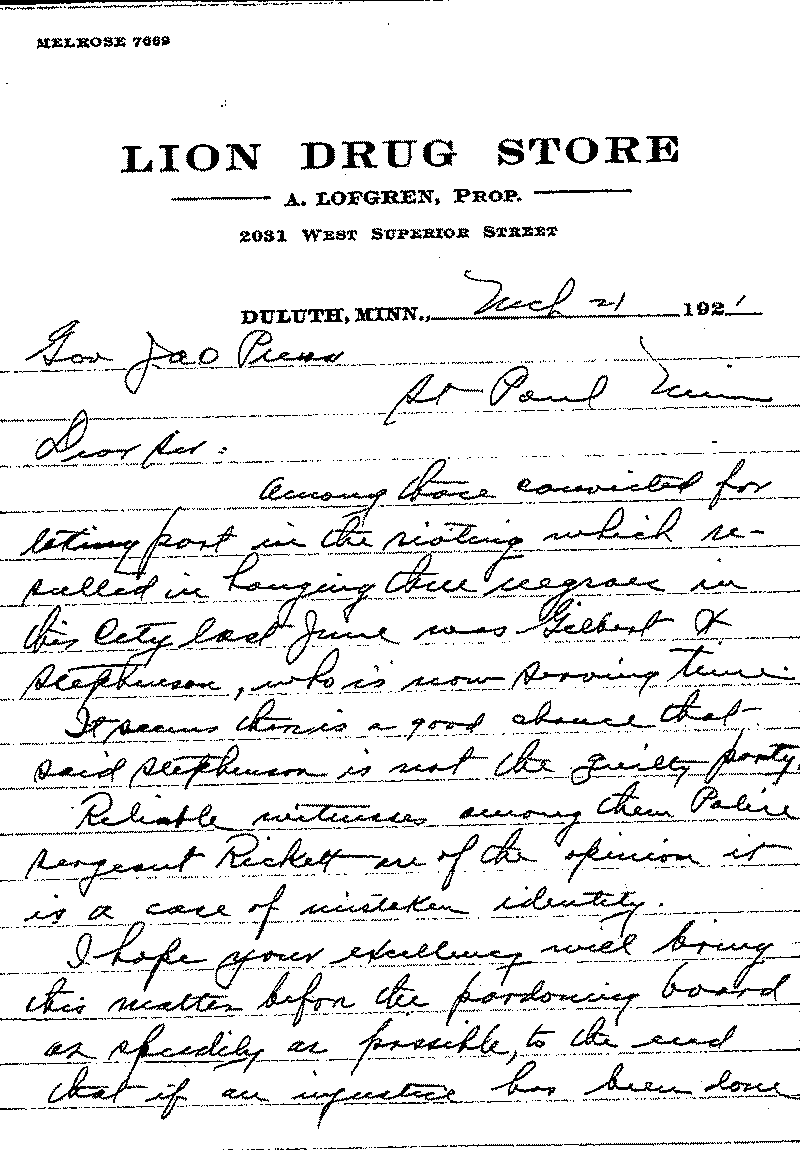 MELROSE 7669
LION DRUG STORE
A. LOFGREN, PROP.
2031 WEST SUPERIOR STREET
DULUTH, MINN., Mch 21 1921
Gov Jao Preus
St Paul Minn
Dear Sir:
Among those convicted for
taking part in the rioting which re-
sulted in hanging three negroes in
this City last June was Gilbert H
Stephenson, who is now serving time.
It seems there is a good chance that
said Stephenson is not the guilty party.
Reliable witnesses among them Police
sergeant Rickett are of the opinion it
is a case of mistaken identity.
I hope your excellency will bring
this matter before the pardoning board
as speedily as possible, to the end
that if an injustice has been done